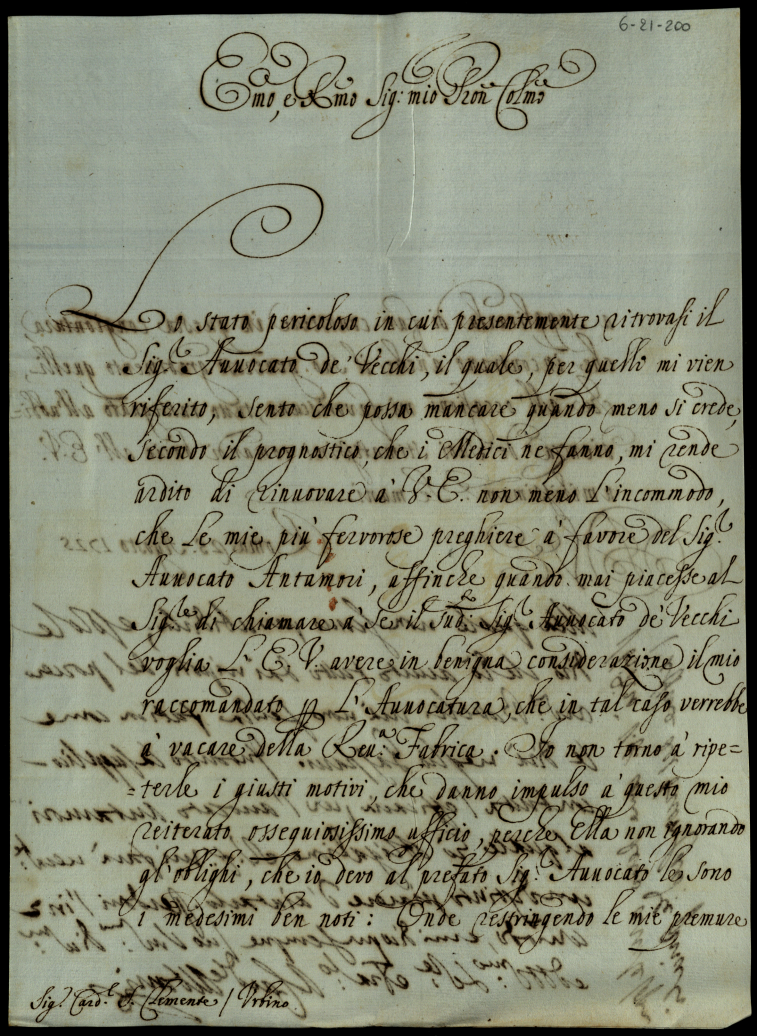 6-21-200
Emo, e Rmo Sig: mio Pron Colmo
Lo stato pericoloso in cui presentemente ritrovasi il
Sig.r Avvocato de' Vecchi, il quale, per quelli mi vien
riferito, sento che possa mancare quando meno si crede,
secondo il prognostico, che i Medici ne fanno, mi rende
ardito di rinuovare à V. E. non meno l'incommodo,
che le mie più fervorose preghiere à favore del Sig.r
Avvocato Antamori, affinche quando mai piacesse al
Sig.re di chiamare à se il sud.to Sig.r Avvocato de' Vecchi
voglia l'E. V. avere in benigna considerazione il mio
raccomandato p l'Avvocatura, che in tal caso verrebbe
à vacare della Rev.a Fabrica. Io non torno à ripe=
=terle i giusti motivi, che danno impulso à questo mio
reiterato ossequiosissimo ufficio, perche Ella non ignorando
gl'oblighi, che io devo al prefato Sig.r Avvocato le sono
i medesimi ben noti: Onde restringendo le mie premure
Sig.r Card.l S. Clemente / Urbino